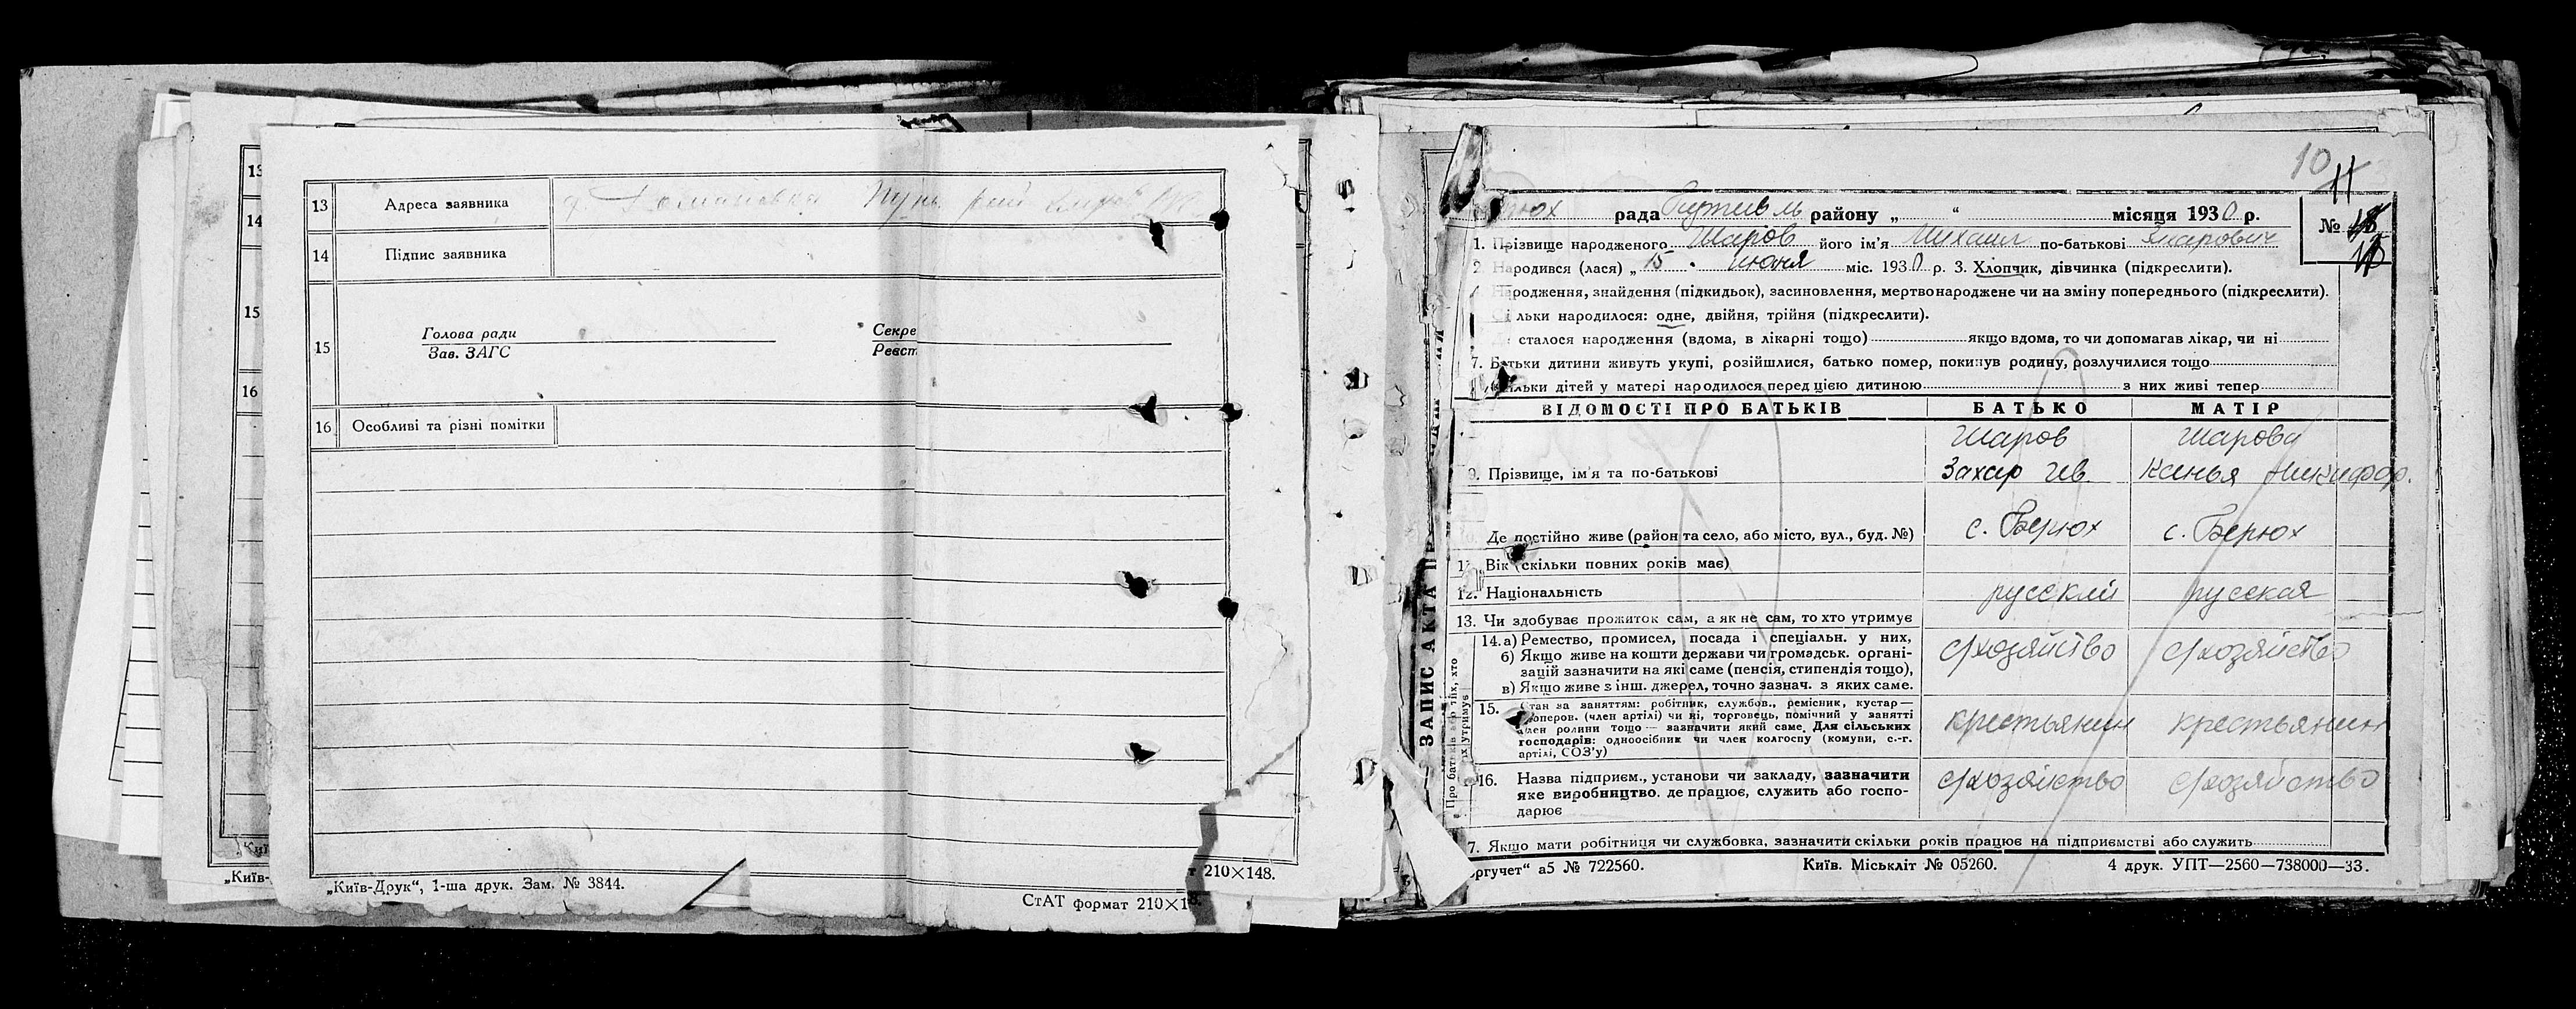 13
14
15
16
„Київ-
13 Адреса заявника
14 Підпис заявника
15 Голова ради
Зав. ЗАГС
Секре
Реєст
16 Особливі та різні помітки
„Київ-Друк“, 1-ша друк. Зам. № 3844.
т 210×148.
СтАТ формат 210×1
10
11
юх рада Путивль району „ “ місяця 1930 р.
№
1. Прізвище народженого Шаров його ім'я Михаил по-батькові Захарович
2. Народився (лася) „ 15 июня міс. 1930 р. 3. Хлопчик, дівчинка (підкреслити).
Народження, знайдення (підкидьок), засиновлення, мертвонароджене чи на зміну попереднього (підкреслити).
льки народилося: одне, двійня, трійня (підкреслити).
сталося народження (вдома, в лікарні тощо) якщо вдома, то чи допомагав лікар, чи ні
7. Батьки дитини живуть укупі, розійшлися, батько помер, покинув родину, розлучилися тощо
льки дітей у матері народилося перед цією дитиною з них живі тепер
ВІДОМОСТІ ПРО БАТЬКІВ БАТЬКО МАТІР
Шаров Шарова
9. Прізвище, ім'я та по-батькові Захар Ив. Ксенья Никифор.
Де постійно живе (район та село, або місто, вул., буд. №) с. Берюх с. Берюх
11. Вік (скільки повних років має)
12. Національність русский русская
13. Чи здобуває прожиток сам, а як не сам, то хто утримує
14. а) Ремество, промисел, посада і спеціальн. у них, с/хозяйство с/хозяйство
б) Якщо живе на кошти держави чи громадськ. органі-
зацій зазначити на які саме (пенсія, стипендія тощо),
в) Якщо живе з інш. джерел, точно зазнач. з яких саме.
15. Стан за заняттям: робітник, службов., ремісник, кустар—
коперов. (член артілі) чи ні, торговець, помічний у занятті
член родини тощо — зазначити який саме. Для сільських крестьянин крестьянин
господарів: одноосібник чи член колгоспу (комуни, с.-г.
артілі, СОЗ'у)
16. Назва підприєм., установи чи закладу, зазначити с/хозяйство с/хозяйство
яке виробництво. де працює, служить або госпо-
дарює
7. Якщо мати робітниця чи службовка, зазначити скільки років працює на підприємстві або служить
ргучет“ а5 № 722560. Київ. Міськліт № 05260. 4 друк. УПТ—2560—738000—33.